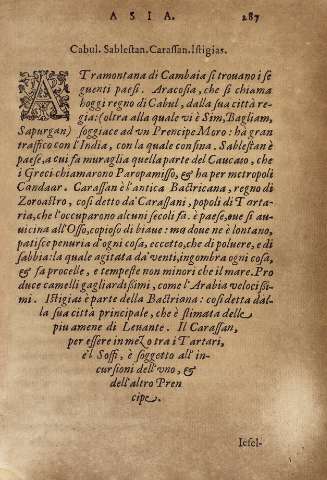 ASIA. 287
Cabul. Sablestan. Carassan. Istigias.
A TRamontana di Cambaia si trouano i se
guenti paesi. Aracosia, che si chiama
hoggi regno di Cabul, dalla sua città re-
gia: (oltra alla quale vi è Sim, Bagliam,
Sapurgan) soggiace ad vn Prencipe Moro: hà gran
traffico con l'India, con la quale confina. Sablestan è
paese, a cui fa muraglia quella parte del Caucaso, che
i Greci chiamarono Paropamisso, & ha per metropoli
Candaar. Carassan è l'antica Bactricana, regno di
Zoroastro, così detto da' Carassani, popoli di Tarta-
ria, che l'occuparono alcuni secoli fà. è paese, oue si au-
uicina all'Osso, copioso di biaue: ma doue ne è lontano,
patisce penuria d'ogni cosa, eccetto, che di poluere, e di
sabbia: la quale agitata da' venti, ingombra ogni cosa,
& fa procelle, e tempeste non minori che il mare. Pro
duce camelli gagliardissimi, come l'Arabia velocissi-
mi. Istigias è parte della Bactriana: così detta dal-
la sua città principale, che è stimata delle
piu amene di Leuante. Il Carassan,
per essere in mezo tra i Tartari,
e'l Soffi, è soggetto all'in-
cursioni dell'vno, &
dell'altro Pren
cipe.
Iesel-